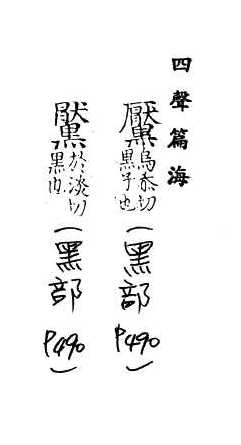 四聲篇海
黶烏忝切
黑子也
(黑部 P490)
於淡切
黑
(黑部 P490)